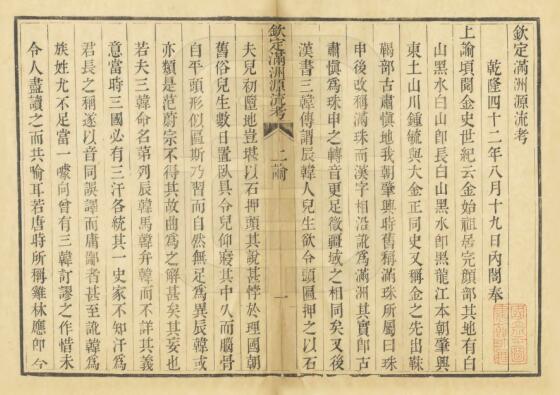 欽定滿洲源流考
乾隆四十二年八月十九日內閣奉
上諭頃閱金史世紀云金始祖居完顏部其地有白
山黑水白山即長白山黑水即黑龍江本朝肇興
東土山川鍾毓與大金正同史又稱金之先出靺
鞨部古肅慎地我朝肇興時舊稱滿珠所屬曰珠
申後改稱滿珠而漢字相沿訛為滿洲其實即古
肅慎為珠申之轉音更足徵疆域之相同矣又後
漢書三韓傳謂辰韓人兒生欲令頭匾押之以石
欽定滿洲源流考 上諭 一
夫兒初墮地豈堪以石押頭其說甚悖於理國朝
舊俗兒生數日置臥具令兒仰寢其中久而腦骨
自平頭形似匾斯乃習而自然無足為異辰韓或
亦類是范蔚宗不得其故曲為之解甚矣其妄也
若夫三韓命名第列辰韓馬韓弁韓而不詳其義
意當時三國必有三汗各統其一史家不知汗為
君長之稱遂以音同誤譯而庸鄙者甚至訛韓為
族姓尤不足當一噱向曾有三韓訂謬之作惜未
令人盡讀之而共喻耳若唐時所稱雞林應即今